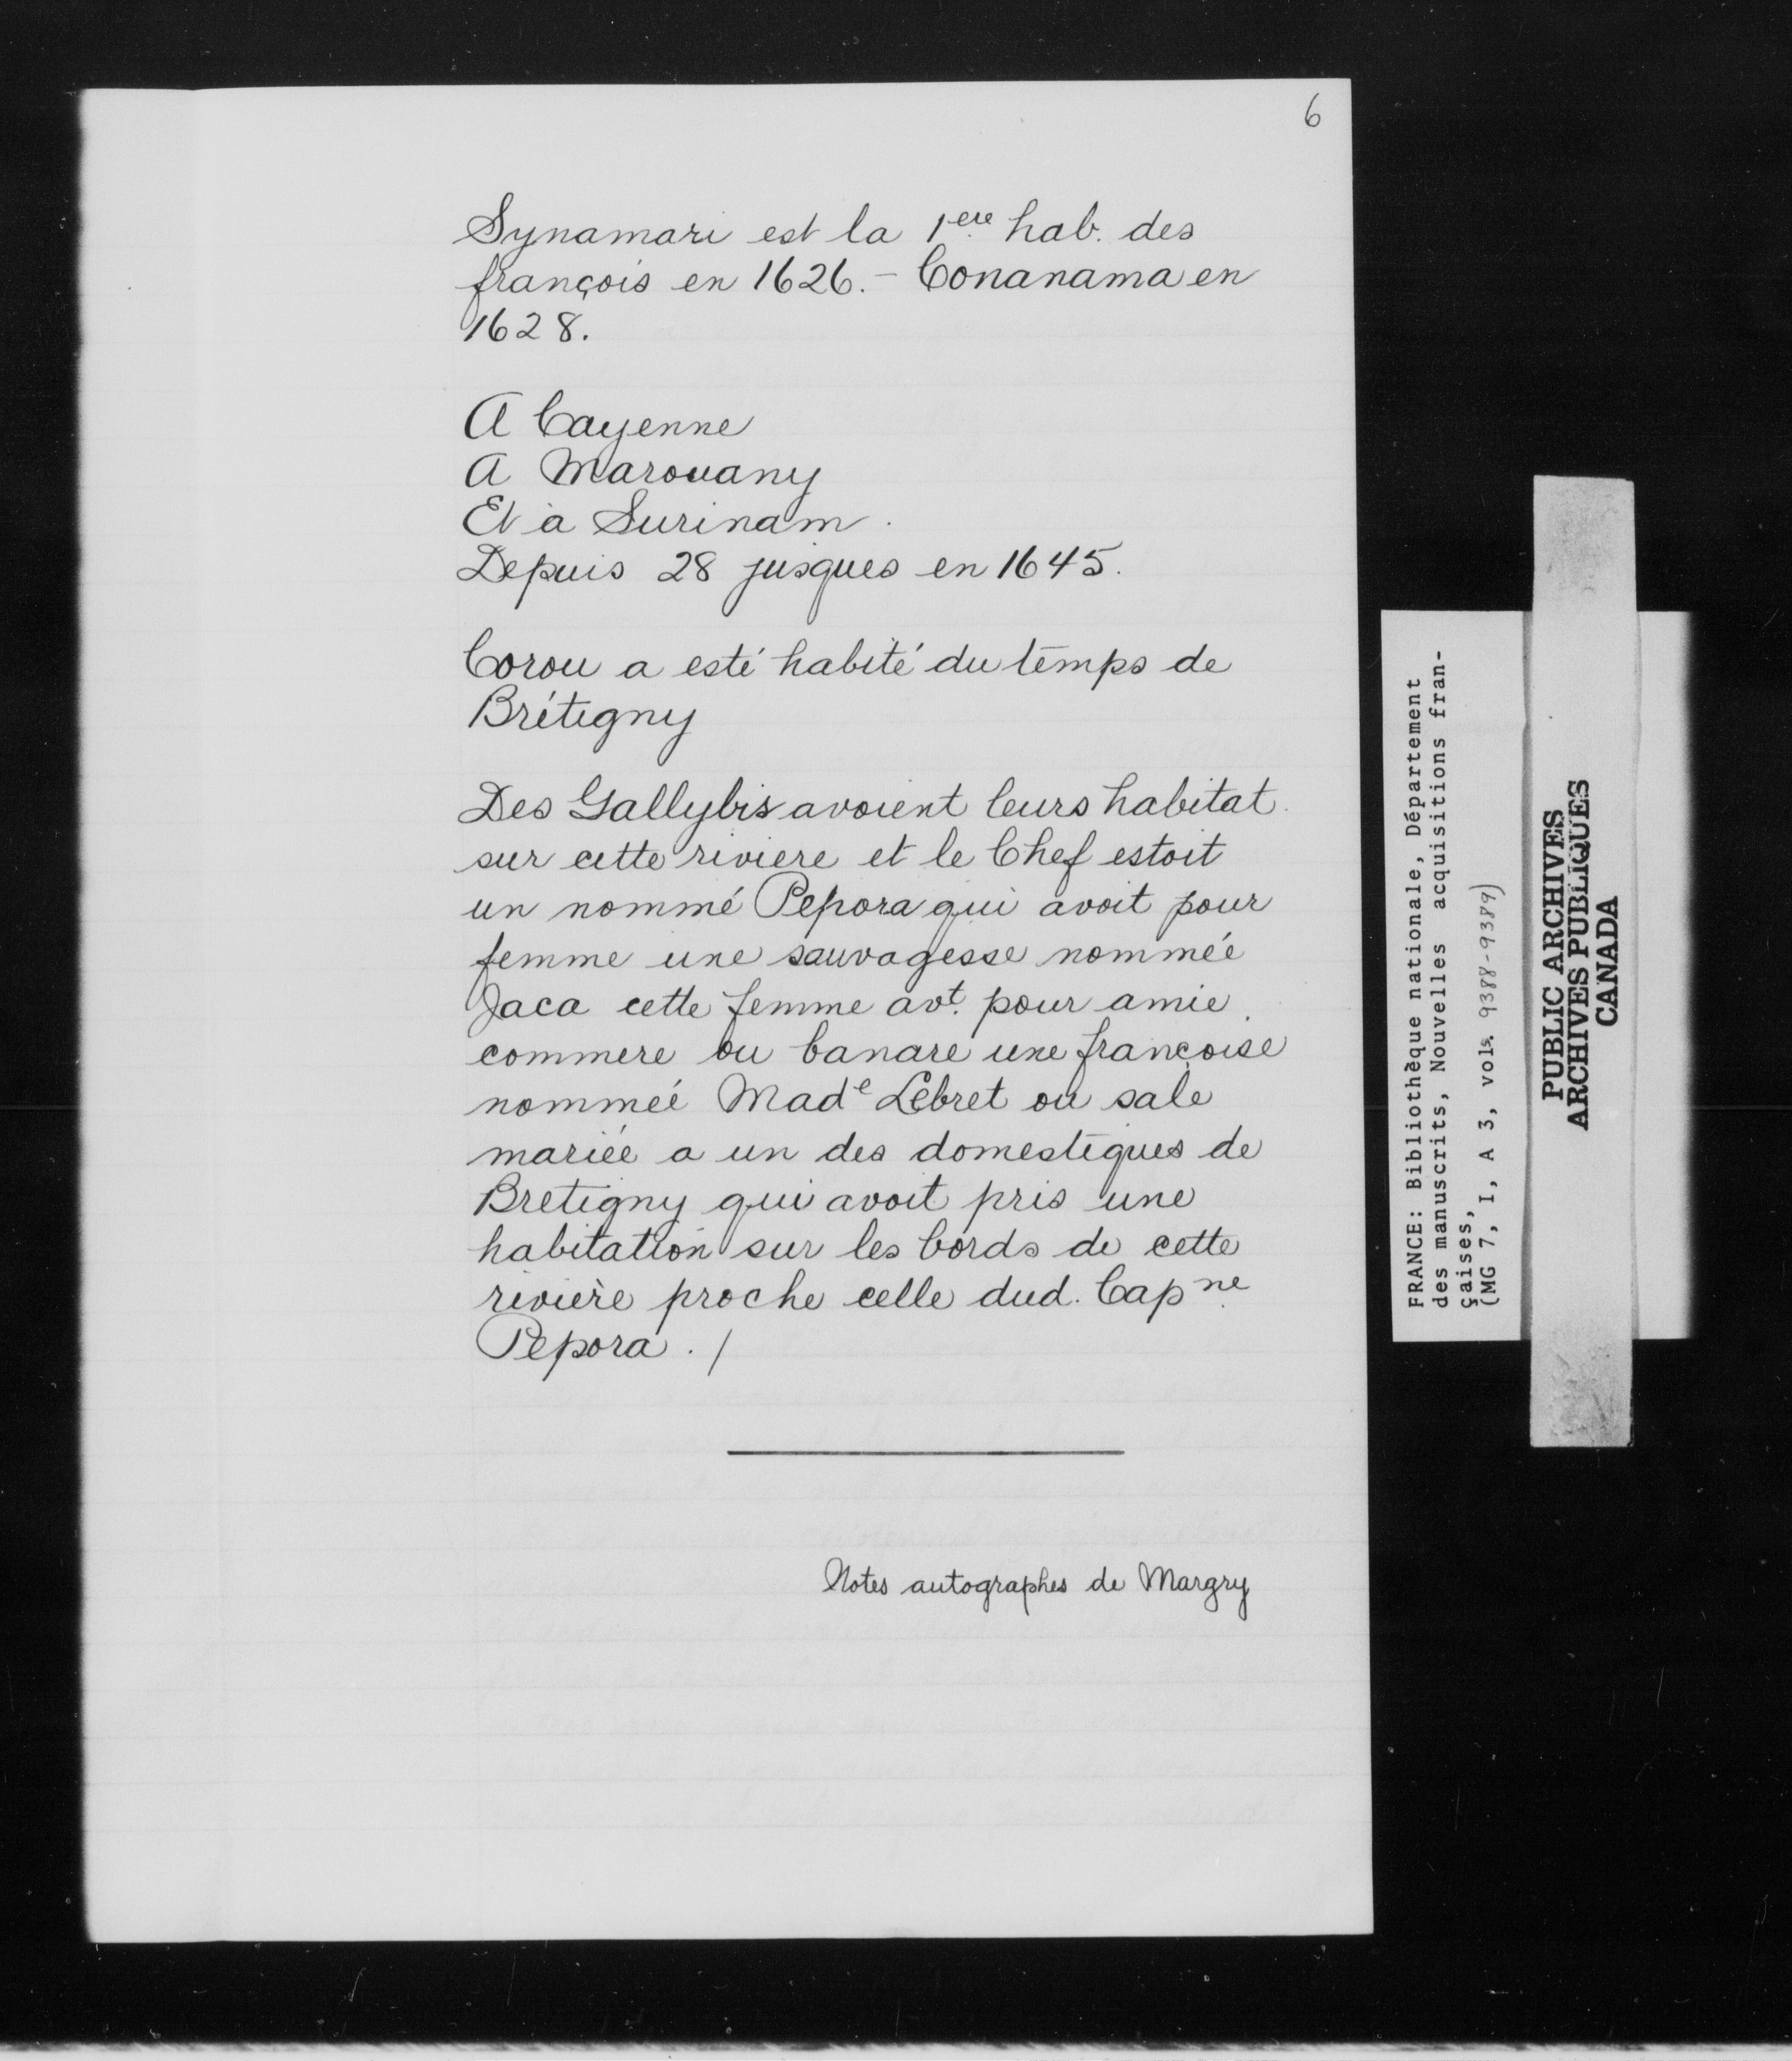 6
Synamari est la 1ere hab. des
françois en 1626. - Conanama en
1628.
A Cayenne
A Marouany
Et à Surinam.
Depuis 28 jusques en 1645.
Corou a esté habité du temps de
Brétigny
Des Gallybis avoient leurs habitat.
sur cette riviere et le Chef estoit
un nommé Pepora qui avoit pour
femme une sauvagesse nommée
Jaca cette femme avt. pour amie
commere ou banare une françoise
nommeé Made Lebret ou sale
mariée a un des domestiques de
Bretigny qui avoit pris une
habitation sur les bords de cette
rivière proche celle dud. Capne
Pepora . /
Notes autographes de Margry
FRANCE: Bibliothèque nationale, Département
des manuscrits, Nouvelles acquisitions fran-
çaises,
(MG 7, I, A 3, vols. 9388-9389)
PUBLIC ARCHIVES
ARCHIVES PUBLIQUES
CANADA